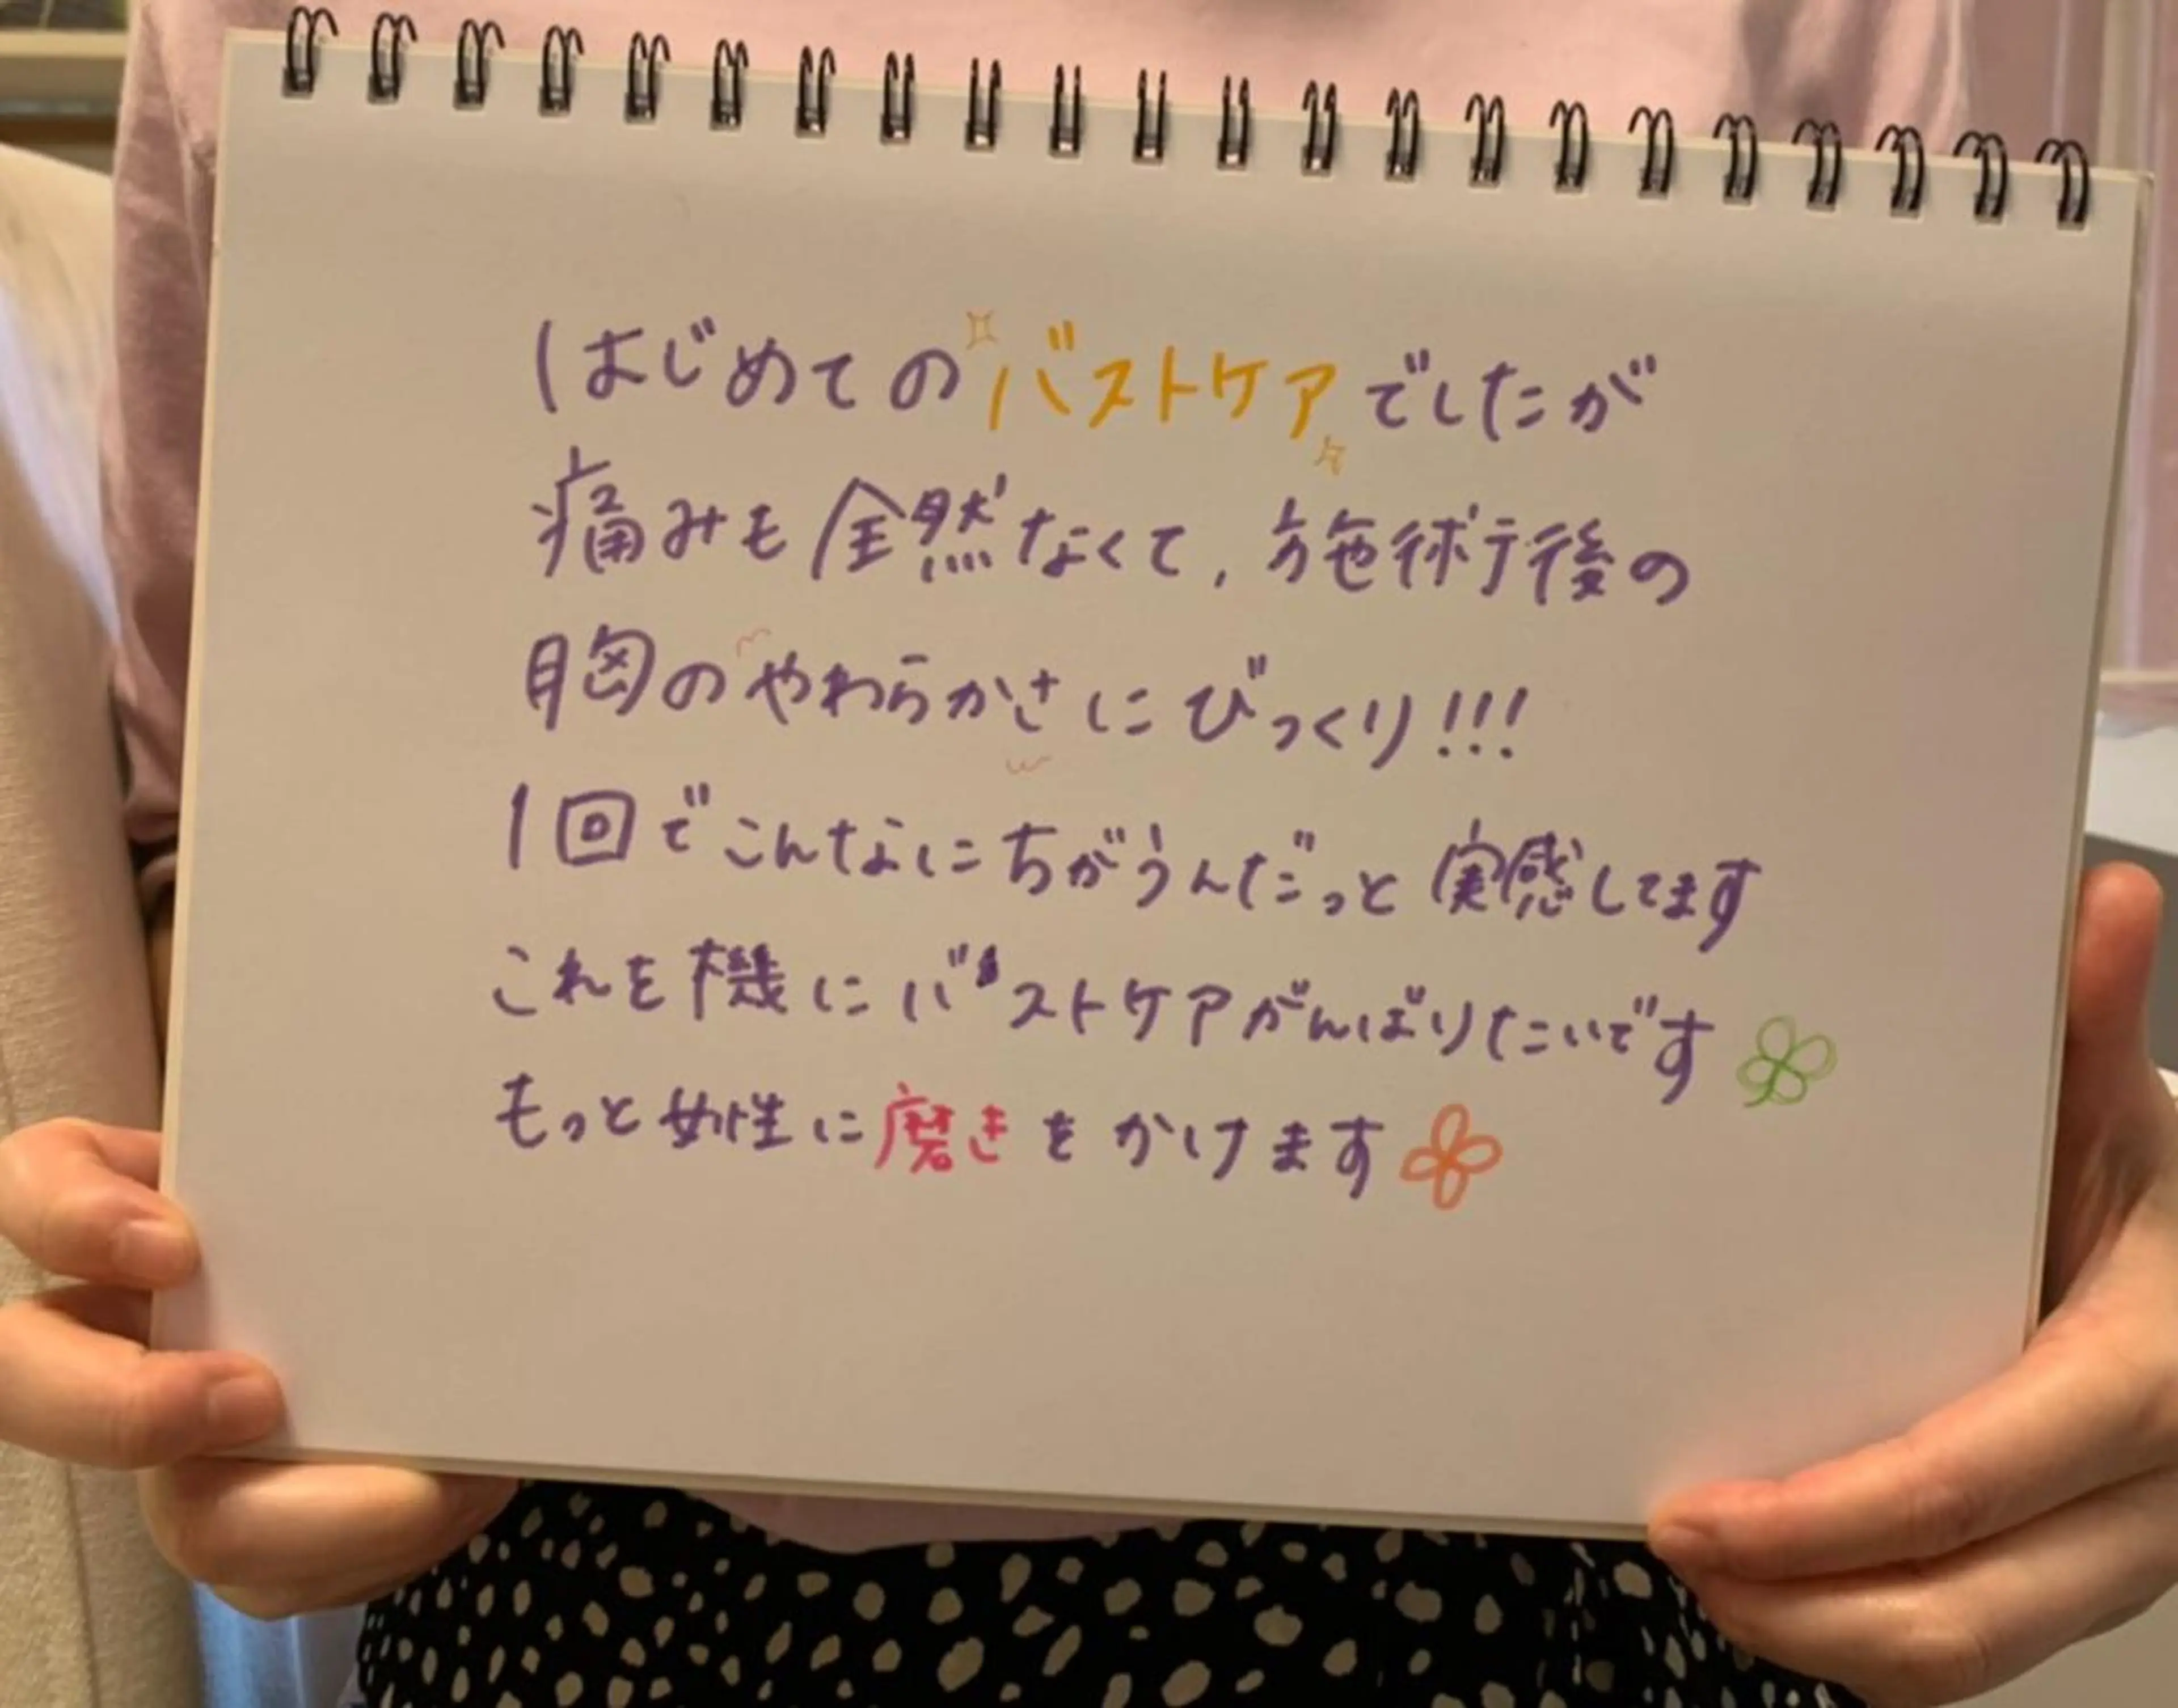 はじめてのバストケアでしたが
痛みも全然なくて、施術後の
胸のやわらかさにびっくり!!!
1回でこんなにちがうんだっと実感してます
これを機にバストケアがんばりたいです
もっと女性に磨きをかけます